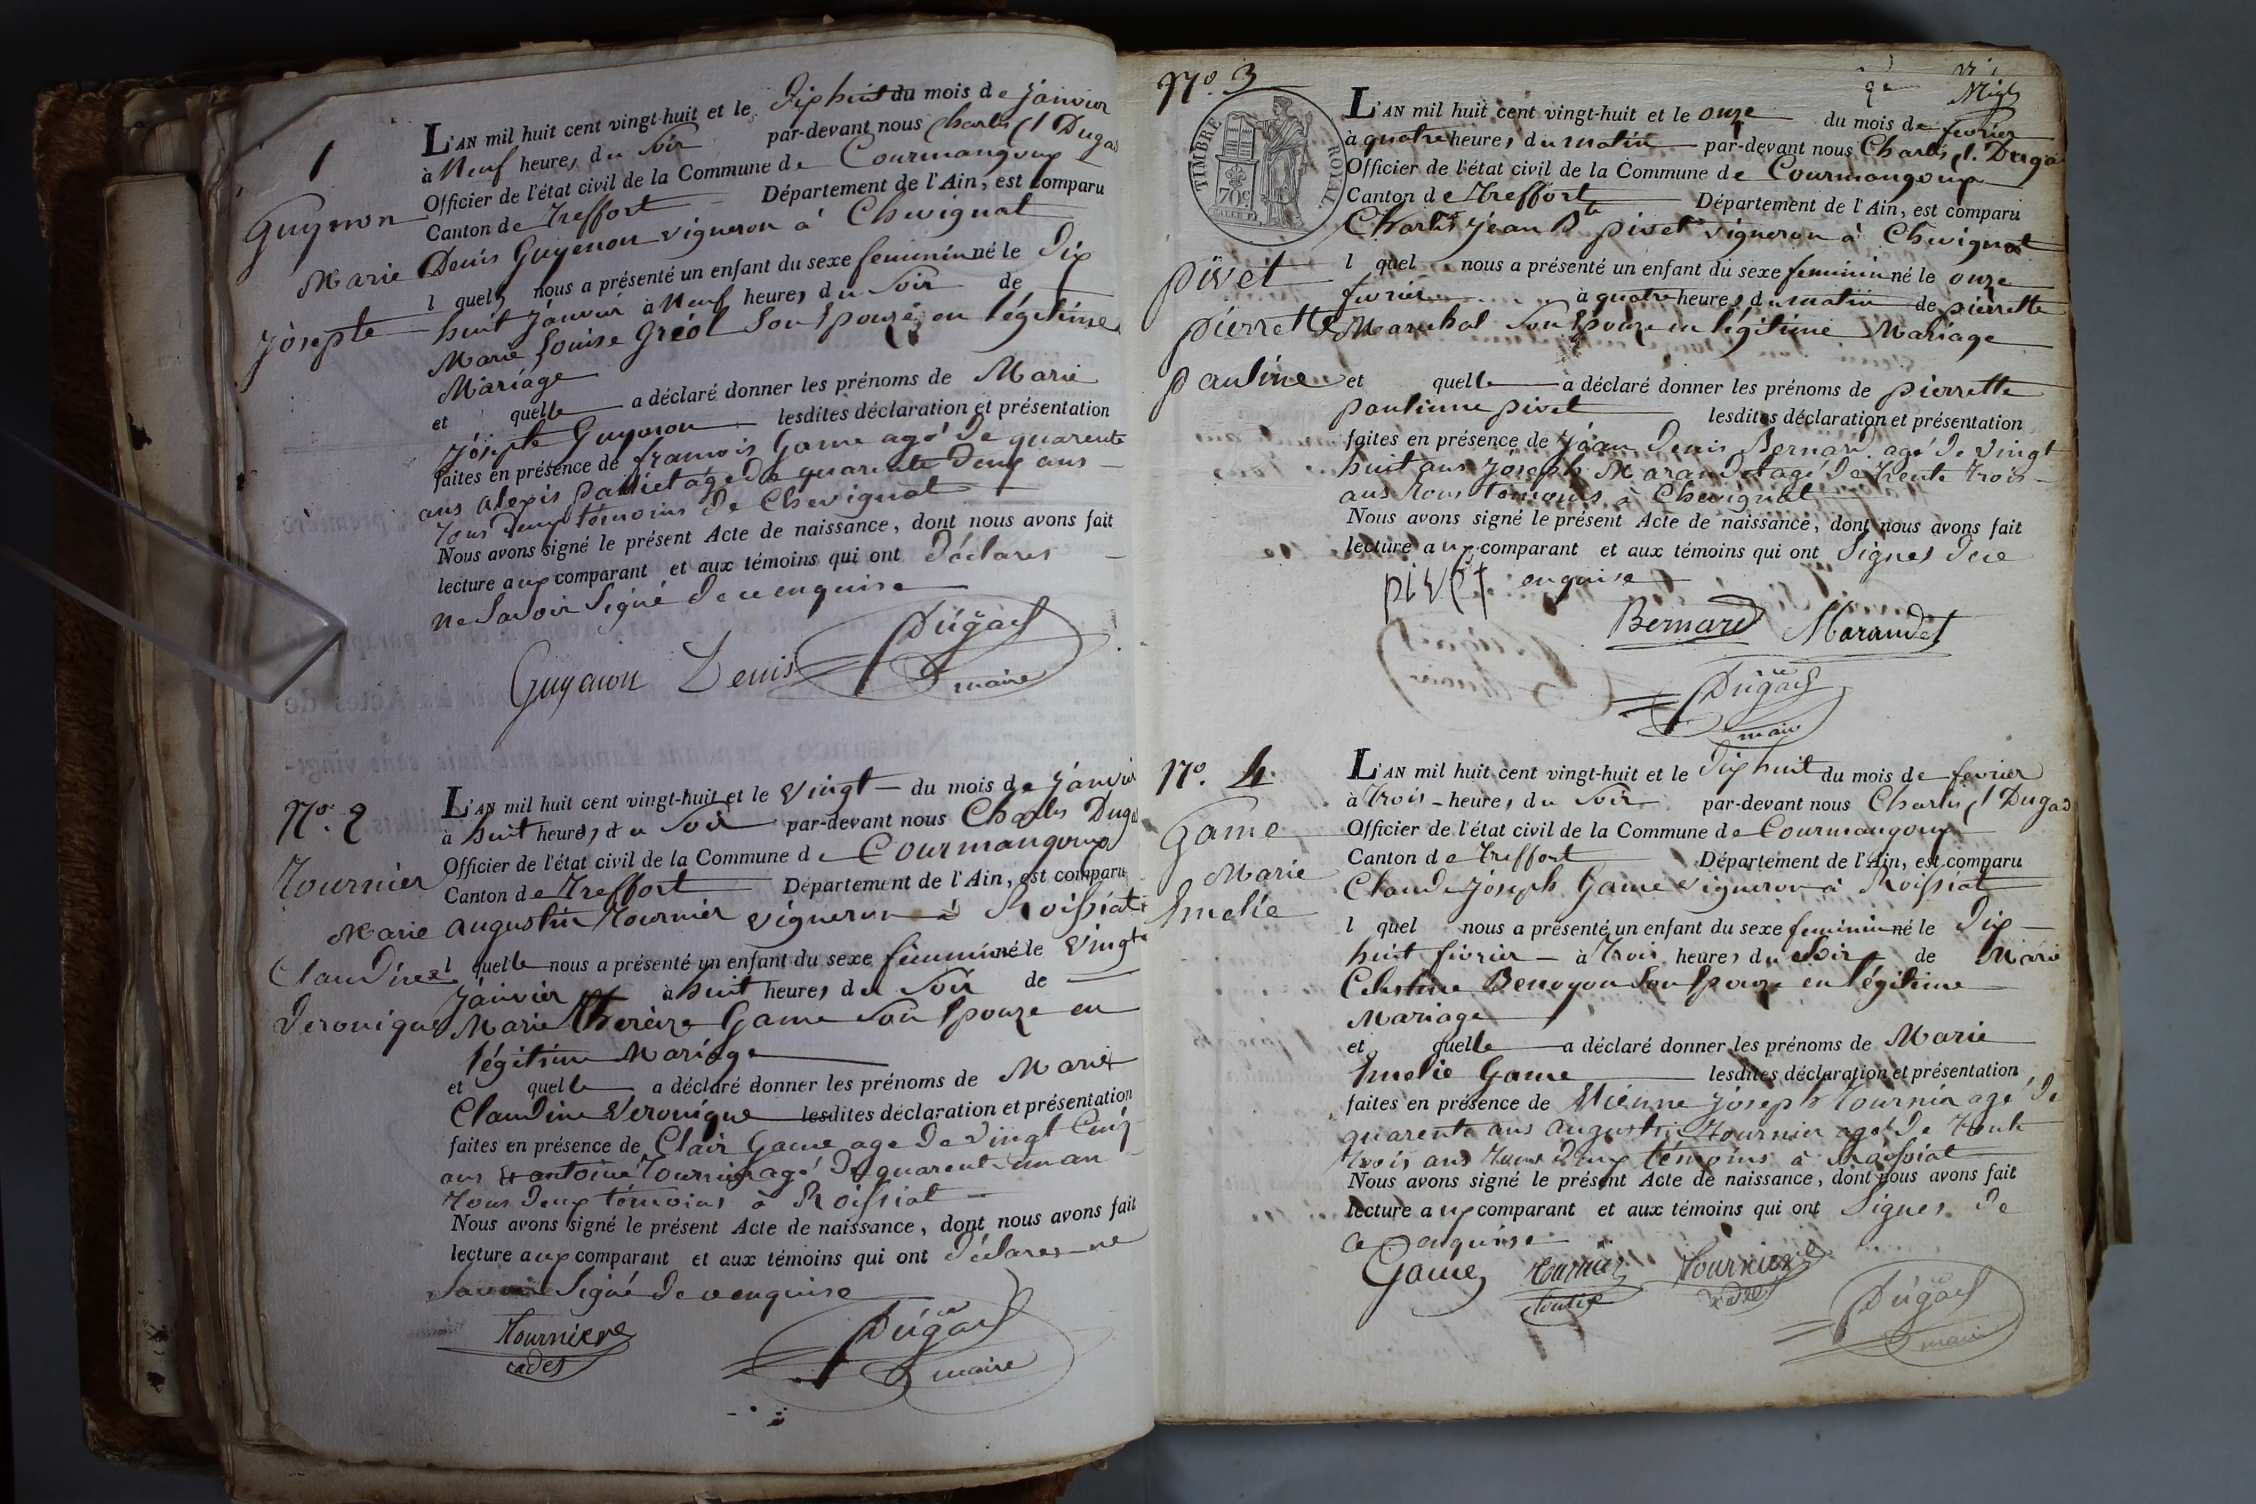 1
Guynon
Marie
Josephte
L'AN mil huit cent vingt-huit et le Dix huit du mois de Janvier
à Neuf heures du Soir par-devant nous Charles Dugas
Officier de l'état civil de la Commune de Courmangoux
Canton de Treffort Département de l'Ain, est comparu
Denis Guyenon vigneron à Chevignat
l quel nous a présenté un enfant du sexe feminin né le Dix
huit Janvier à Neuf heures du Soir de
Marie Louise Gréol Son Epouze en légitime
Mariage
et quelle a déclaré donner les prénoms de Marie
Josephte Guyonon lesdites déclaration et présentation
faites en présence de francois Game agé de quarente
ans alexis paquet agé de quarente Deux ans
Tous Deux témoins De Chevignat
Nous avons signé le présent Acte de naissance, dont nous avons fait
lecture aux comparant et aux témoins qui ont Déclarés
ne Savoir Signé De ce enquise
Guyenon Denis Dugas
maire
N.o 2
Tournier
Marie
Claudine
Veronique
L'AN mil huit cent vingt-huit et le vingt du mois de Janvier
à huit heures du Soir par-devant nous Charles Dugas
Officier de l'état civil de la Commune de Courmangoux
Canton de Treffort Département de l'Ain, est comparu
augustin Tournier vigneron à Roissiat
l quelle nous a présenté un enfant du sexe feminin né le vingt
Janvier à huit heures du Soir de
Marie Thereize Game Son Epouze en
légitime Mariage
et quelle a déclaré donner les prénoms de Marie
Claudine Veronique lesdites déclaration et présentation
faites en présence de Clair Game age De vingt Cinq
ans et antoine Tournier agé De quarent un an
Tous Deux témoins à Roissiat
Nous avons signé le présent Acte de naissance, dont nous avons fait
lecture aux comparant et aux témoins qui ont Déclares ne
Savoir Signé De ce enquise
Tournier
cadet
Dugas
maire
N.o 3
TIMBRE ROYAL
70c
pivet
pierrette
pauline
L'AN mil huit cent vingt-huit et le onze du mois de fevrier
à quatre heures du matin par-devant nous Charles Dugas
Officier de l'état civil de la Commune de Courmangoux
Canton de Treffort Département de l'Ain, est comparu
Charles Jean Bte pivet vigneron à Chevignat
l quel nous a présenté un enfant du sexe feminin né le onze
fevrier à quatre heures du matin de pierrette
Marechal Son Epouze en légitime Mariage
et quelle a déclaré donner les prénoms de pierrette
paulinne pivet lesdites déclaration et présentation
faites en présence de Jean Denis Bernard agé De vingt
huit ans Joseph Marandet agé De trente trois
ans Tous témoins à Chevignat
Nous avons signé le présent Acte de naissance, dont nous avons fait
lecture aux comparant et aux témoins qui ont Signes De ce
enquise
pivet
Bernard Marandet
Dugas
maire
N.o 4
Game
Marie
Emelie
L'AN mil huit cent vingt-huit et le Dix huit du mois de fevrier
à Trois heures du Soir par-devant nous Charles Dugas
Officier de l'état civil de la Commune de Courmangoux
Canton de Treffort Département de l'Ain, est comparu
Claude Joseph Game vigneron à Roissiat
l quel nous a présenté un enfant du sexe feminin né le Dix
huit fivrier à Trois heures du Soir de Marie
Celestine Benoyon Son Epouze en légitime
Mariage
et quelle a déclaré donner les prénoms de Marie
Emelie Game lesdites déclaration et présentation
faites en présence de Etienne Joseph Tournier agé De
quarente ans augustin Tournier agé De Trente
trois ans Tous Deux témoins à Roissiat
Nous avons signé le présent Acte de naissance, dont nous avons fait
lecture aux comparant et aux témoins qui ont Signes De
ce enquise
Game Tournier Tournier
cadet
Dugas
maire